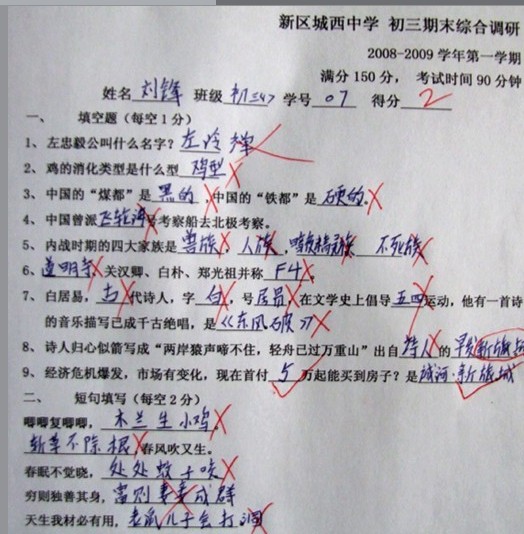 新区城西中学 初三期末综合调研
2008-2009 学年第一学期
满分 150 分， 考试时间 90 分钟
姓名 刘锋 班级 初三47 学号 07 得分 2
一、 填空题（每空 1 分）
1、左忠毅公叫什么名字？左冷禅
2、鸡的消化类型是什么型 鸡型
3、中国的“煤都”是 黑的 ,中国的“铁都”是 硬的。
4、中国曾派飞轮海号考察船去北极考察。
5、内战时期的四大家族是 兽族 ， 人族 ， 暗夜精灵族 不死族
6、道明寺、关汉卿、白朴、郑光祖并称 F4
7、白居易，古代诗人，字 白 ，号居易，在文学史上倡导五四运动，他有一首诗
的音乐描写已成千古绝唱，是《东风破》
8、诗人归心似箭写成“两岸猿声啼不住，轻舟已过万重山”出自 诗人 的 早发新旅城
9、经济危机爆发，市场有变化，现在首付 5 万起能买到房子？是 域河·新旅城
二、 短句填写（每空 2 分）
唧唧复唧唧， 木兰生小鸡 。
斩草不除根 ,春风吹又生。
春眠不觉晓， 处处蚊子咬
穷则独善其身，富则妻妾成群
天生我材必有用，老鼠儿子会打洞